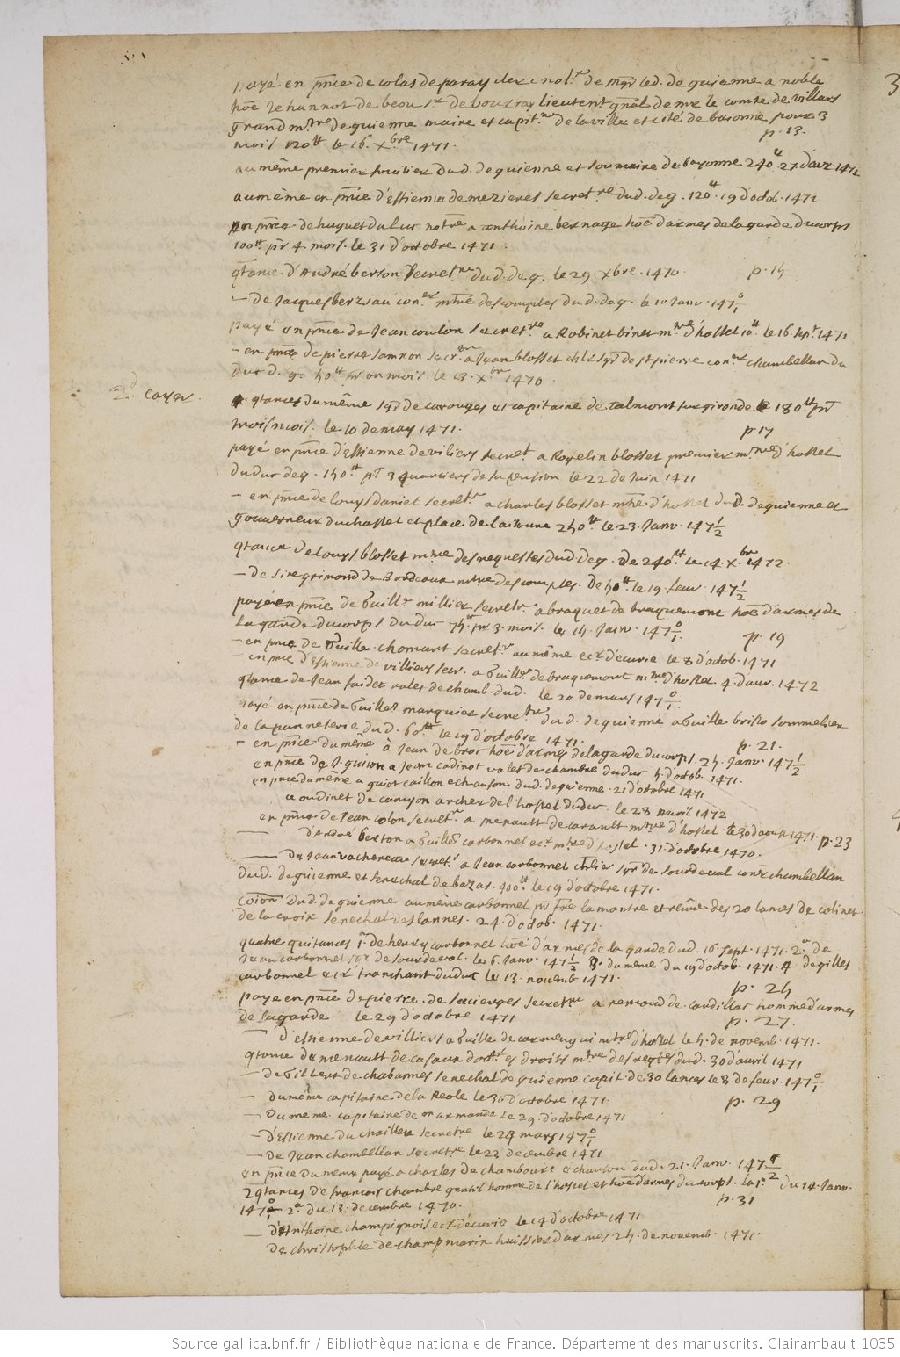 payé en pñce de colas de paray clerc not.re de mgr le d. de guienne a noble
hoe Jehannot de beau sr de bourray lieutent gñal de mr le comte de villars
grand m.tre de guienne maire et capit.ne de la ville et cité de baionne pour 3
mois 120lt le 16 xbre 1471. p. 13.
au même premier huissier du d. de guienne et soumaire de bayonne 240lt 27 d'avr 1471
au même en pñce d'estienne de mezieres secret.re dud. de g. 120lt 19 d'octob. 1471
en pñce de huguet du luc notre a anthoine bernage hoe d'armes de la garde du corps
100lt pr 4 mois. le 31 d'octobre 1471.
qtance d'André berson secret.re du d. de g. le 29 xbre. 1470. p. 15
— de Jacques berziau con.er mtre des comptes du d. de g. le 10 Janv. 147 0/1
payé en pñce de Jean coulon secret.re a Robinet binet m.re d'hostel le 16 sept 1471
— en pñce de pierre samson secr.re a Jean blosset ch.r sgr de st pierre con.er chambellan du
duc d. g. 50lt pr un mois. le 13. xbre 1470.
2d cayer. qtances du même sgr de carouges et capitaine de talmont sur gironde 180lt pr
trois mois. le 10 de may 1471. p. 17
payé en pñce d'Estienne de villiers secret. a Rogelin blosset premier m.tre d'hostel
du duc de g. 150lt pr 3 quartiers de sa pension le 22 de Juin 1471
— en pñce de louys daniel secret.re a charles blosset mtre d'hostel du d. de guienne et
gouverneur du chastel et place de la 250lt le 23. Janv. 147 1/2
qtance de louys blosset m.tre des requestes du d. de g. de 240lt le 14 xbre 1472.
— de sire grimond de Bordeaux mtre des comptes. de 50lt le 19. fevr. 147 1/2
payé en pñce de Guill.e millier secret. a braquet de braquemont hoe d'armes de
la garde du corps du duc 75lt pr 3 mois. le 15. Janv. 147 0/1 p. 19
— en pñce de Guille. chomart secret.re au même ecr d'ecurie le 8 d'octob. 1471
— en pñce d'Estienne de villiers secr. a Guill.e de braquemont m.re d'hostel 4. d'avr. 1472
qtance de Jean faidet valet de chaul du d. le 20 de mars 147 0/1
payé en pñce de Guille marquier secret.re du d. de guienne a Guille brisso sommelier
de la panneterie du d. 60lt le 19 d'octobre 1471. p. 21.
— en pñce du même à Jean de broc hoe d'armes de la garde du corps 25. Janv. 147 1/2
en pñce de a Jean cadinot valet de chambre du duc 5 d'octob. 1471.
en pñce du même a guiot caillon echanson du d. de guienne. 21 d'octobre 1471
a oudinet de canyon archer de l'hostel du duc. le 28 1472
en pñce de Jean colon secret.re a menault de casault m.tre d'hostel le 30 d'aoust 1471. p. 23
— d'André berson a Guille carbonnel ecr m.tre d'hostel. 31 d'octobre 1470.
— de Jean vachereau secret.e a Jean carbonnel chlier sgr de sourdeval con.er chambellan
du d. de guienne et seneschal de bazas. 400lt le 19 d'octobre 1471.
com.on du d. de guienne au même carbonnel pr fre la montre et reveue des 20 lances de colinet
de la croix seneschal des lannes. 24. d'octob. 1471.
quatre quitances 1.re de henry carbonnel hoe d'armes de la garde du d. 16 sept. 1471. 2.e de
Jean carbonnel sgr de sourdeval. le 6 Janv. 147 1/2 3. du même du 19 d'octob 1471. 4. de gilles
carbonnel ecr tranchant du duc le 13 novemb 1471. p. 25
payé en pñce de pierre. de sacierges secret.re a remond de cardillac homme d'armes
de la garde le 29 d'octobre 1471 p. 27.
— d'estienne de villiers a Guille de carmesqui m.tre d'hostel le 5. de novemb. 1471.
qtance de menault de casaux doct.r es droits m.tre des req.tes du d. 30 d'avril 1471
— de Gilbert de chabannes seneschal de guienne capit. de 30 lances le 8 de fevr. 147 0/1
— du même capitaine de la Reole le 30 d'octobre 1471. p. 29
— du meme capitaine de marmande le 29 d'octobre 1471
— d'Estienne du chailler secretre le 28 mars 147 0/1
— de Jean chambellan secret.re le 23 decembre 1471
en pñce du même payé a charles de chambourc echanson du d. 21. Janv. 147 1/2
2 qtances de françois chambre gentilhomme de l'hostel et hoe d'armes du corps. la 1.e du 14. Janv.
147 0/1 — 2.e du 13. decembre 1470. p. 31
— d'Anthoine champignois ecr d'ecurie le 19 d'octobre 1471
de christophle de champmorin huissier d'armes 25. de novemb. 1471.
Source gallica.bnf.fr / Bibliothèque nationale de France. Département des manuscrits. Clairambault 1035